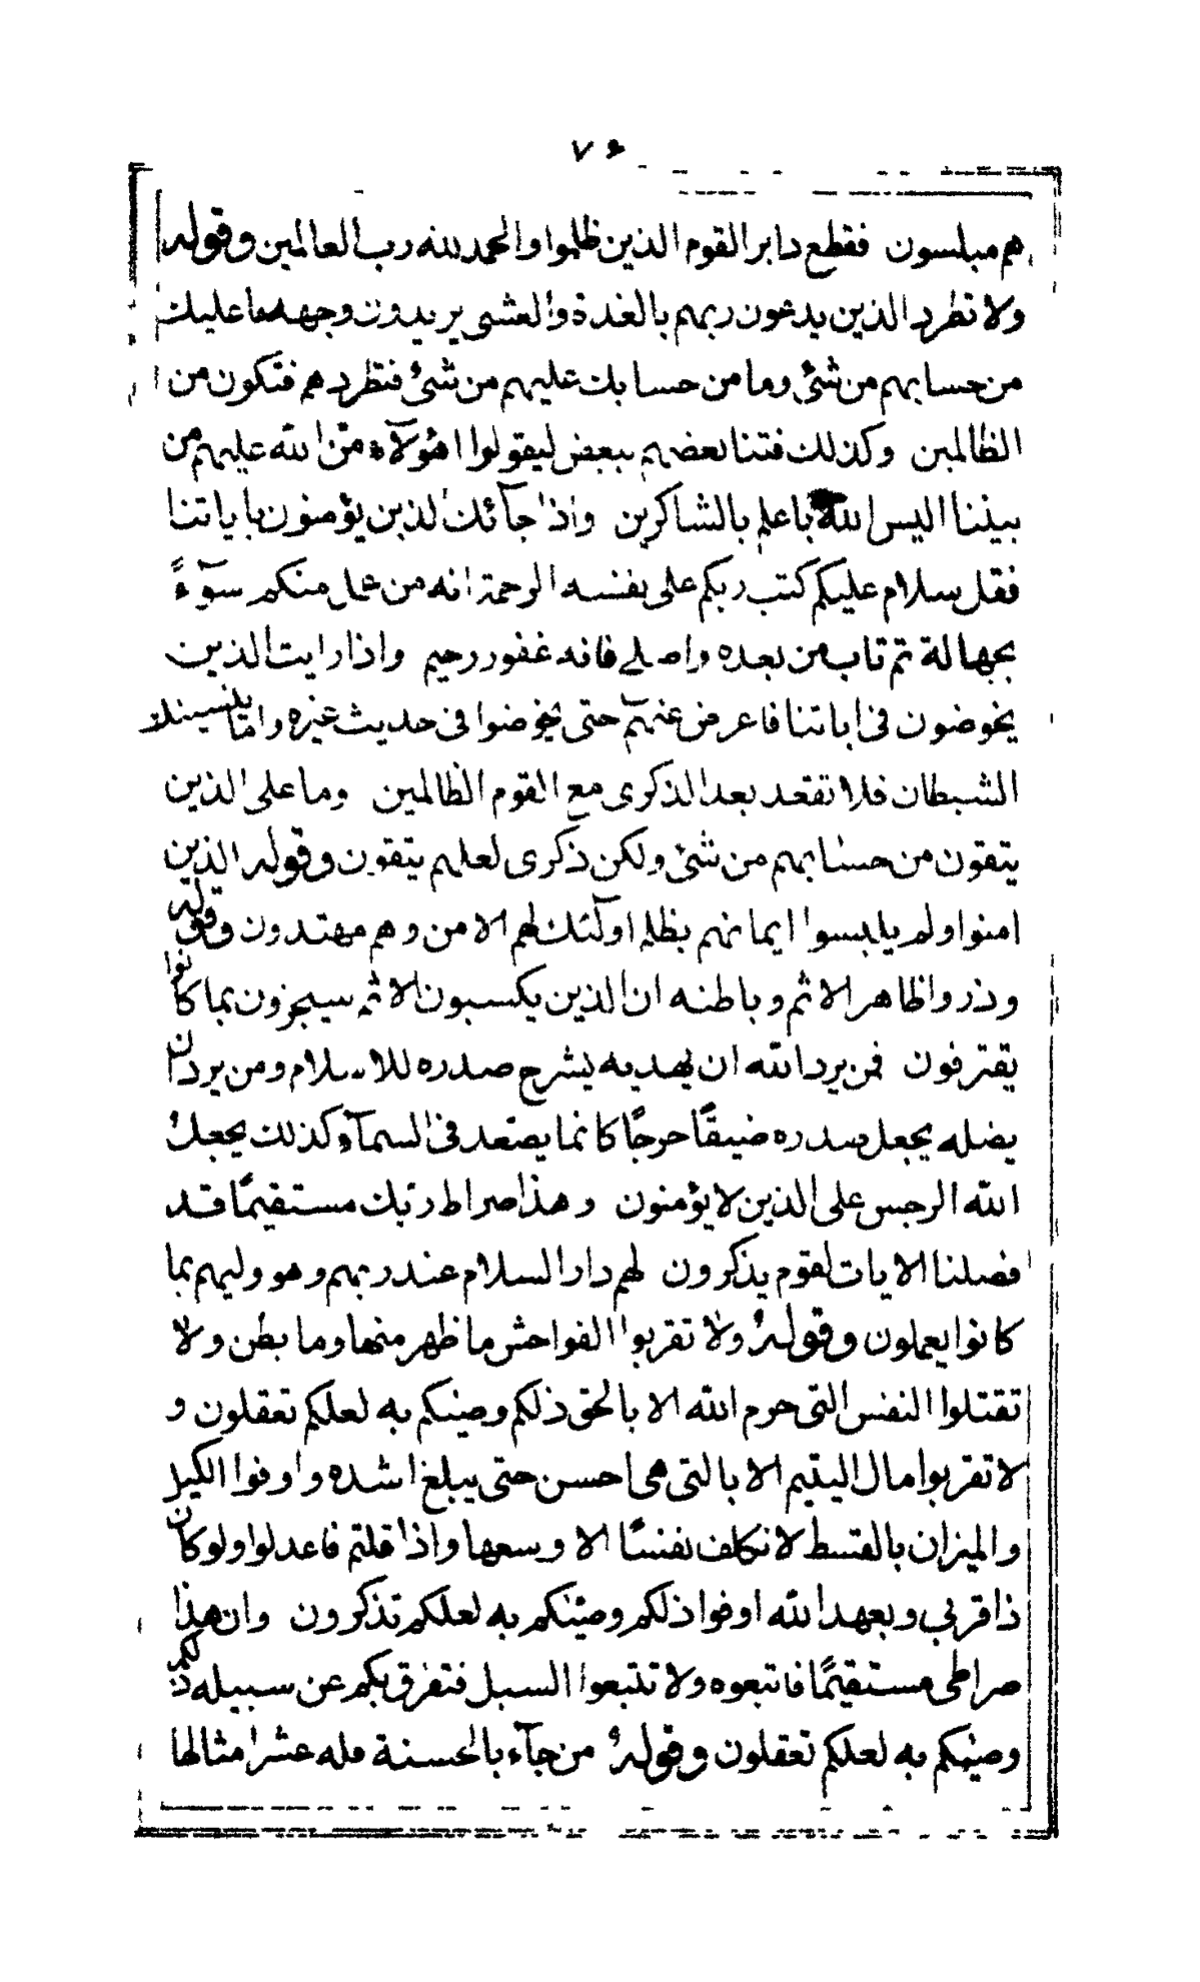 ۷۶
هم مبلسون فقطع دابر القوم الذين ظلموا والحمد لله رب العالمين وقوله
ولا تطرد الذين يدعون ربهم بالغدة والعشى يريدون وجهه ما عليك
من حسابهم من شئ وما من حسابك عليهم من شئ فتطردهم فتكون من
الظالمين وكذلك فتنا بعضهم ببعض ليقولوا اهؤلآء منّ الله عليهم من
بيننا اليس الله باعلم بالشاكرين واذا جآئك الذين يؤمنون باياتنا
فقل سلام عليكم كتب ربكم على نفسه الرحمة انه من عمل منكم سوٓءً
بجهالة ثم تاب من بعده واصلح فانه غفور رحيم واذا رايت الذين
يخوضون فى اياتنا فاعرض عنهم حتى يخوضوا فى حديث غيره وامّا ينسينك
الشيطان فلا تقعد بعد الذكرى مع القوم الظالمين وما على الذين
يتقون من حسابهم من شئ ولكن ذكرى لعلهم يتقون وقوله الذين
امنوا ولم يلبسوا ايمانهم بظلم اولٓئك لهم الامن وهم مهتدون وقوله
وذروا ظاهر الاثم وباطنه ان الذين يكسبون الاثم سيجزون بما كانوا
يقترفون فمن يرد الله ان يهديه يشرح صدره للاسلام ومن يرد ان
يضله يجعل صدره ضيقًا حرجًا كانما يصّعد فى السمآء كذلك يجعل
الله الرجس على الذين لا يؤمنون وهذا صراط ربّك مستقيمًا قد
فصلنا الايات لقوم يذكرون لهم دار السلام عند ربهم وهو وليهم بما
كانوا يعملون وقولهُ ولا تقربوا الفواحش ما ظهر منها وما بطن ولا
تقتلوا النفس التى حرم الله الا بالحق ذلكم وصيكم به لعلكم تعقلون و
لا تقربوا مال اليتيم الا بالتى هى احسن حتى يبلغ اشده واوفوا الكيل
والميزان بالقسط لا نكلف نفسًا الا وسعها واذا قلتم فاعدلوا ولو كان
ذا قربى وبعهد الله اوفوا ذلكم وصيّكم به لعلكم تذكرون وان هذا
صراطى مستقيمًا فاتبعوه ولا تتبعوا السبل فتفرق بكم عن سبيله ذلكم
وصيكم به لعلكم تعقلون وقولهُ من جآء بالحسنة فله عشر امثالها